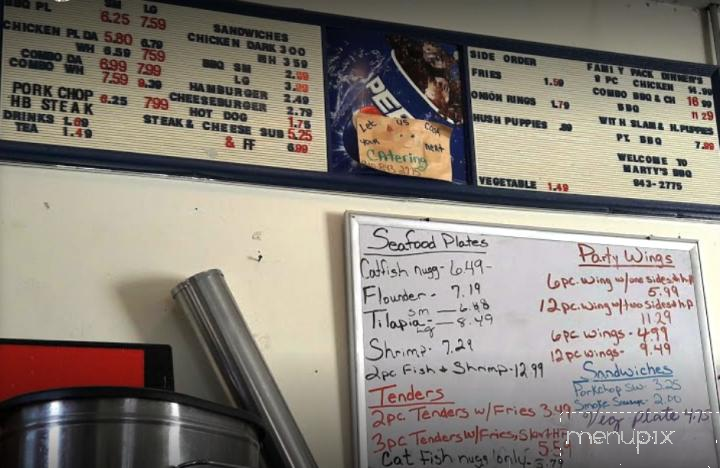 BBQ PL SM LG
6.25 7.59
CHICKEN PL DA 5.80 6.79
WH 6.59 759
COMBO DA 6.99 7.99
COMBO WH 7.59 8.39
PORK CHOP
HB STEAK 6.25 799
DRINKS 1.69
TEA 1.49
SANDWICHES
CHICKEN DARK 3 00
WH 3 59
BBQ SM
LG
HAMBURGER
CHEESEBURGER 2.49
HOT DOG 2.79
STEAK & CHEESE SUB 5.25
& FF 6.99
PEPSI
Let us Cater
your next
Catering
843 2775
SIDE ORDER
FRIES 1.59
ONION RINGS 1.79
HUSH PUPPIES .99
VEGETABLE 1.49
FAMILY PACK DINNER'S
8 PC CHICKEN 14.99
COMBO BBQ & CH 16 99
BBQ 11 29
WITH SLAW & H.PUPPIES
PT. BBQ 7.99
WELCOME TO
MARTY'S BBQ
843-2775
Seafood Plates
Catfish nugg - 6.49 -
Flounder - 7.19
Tilapia sm - 6.88
Lg - 8.49
Shrimp - 7.29
2pc Fish + Shrimp - 12.99
Tenders
2pc Tenders w/ Fries 3.49
3pc Tenders w/ Fries, Slaw + H.P
5.59
Cat fish nugg only -
Party Wings
6pc. wing w/one side + h.p
5.99
12pc. wing w/two sides + h.p
11.29
6pc wings - 4.99
12pc wings - 9.49
Sandwiches
Porkchop sw. 3.25
Smoke Sausage - 2.00
Veg plate 4.75
menupix